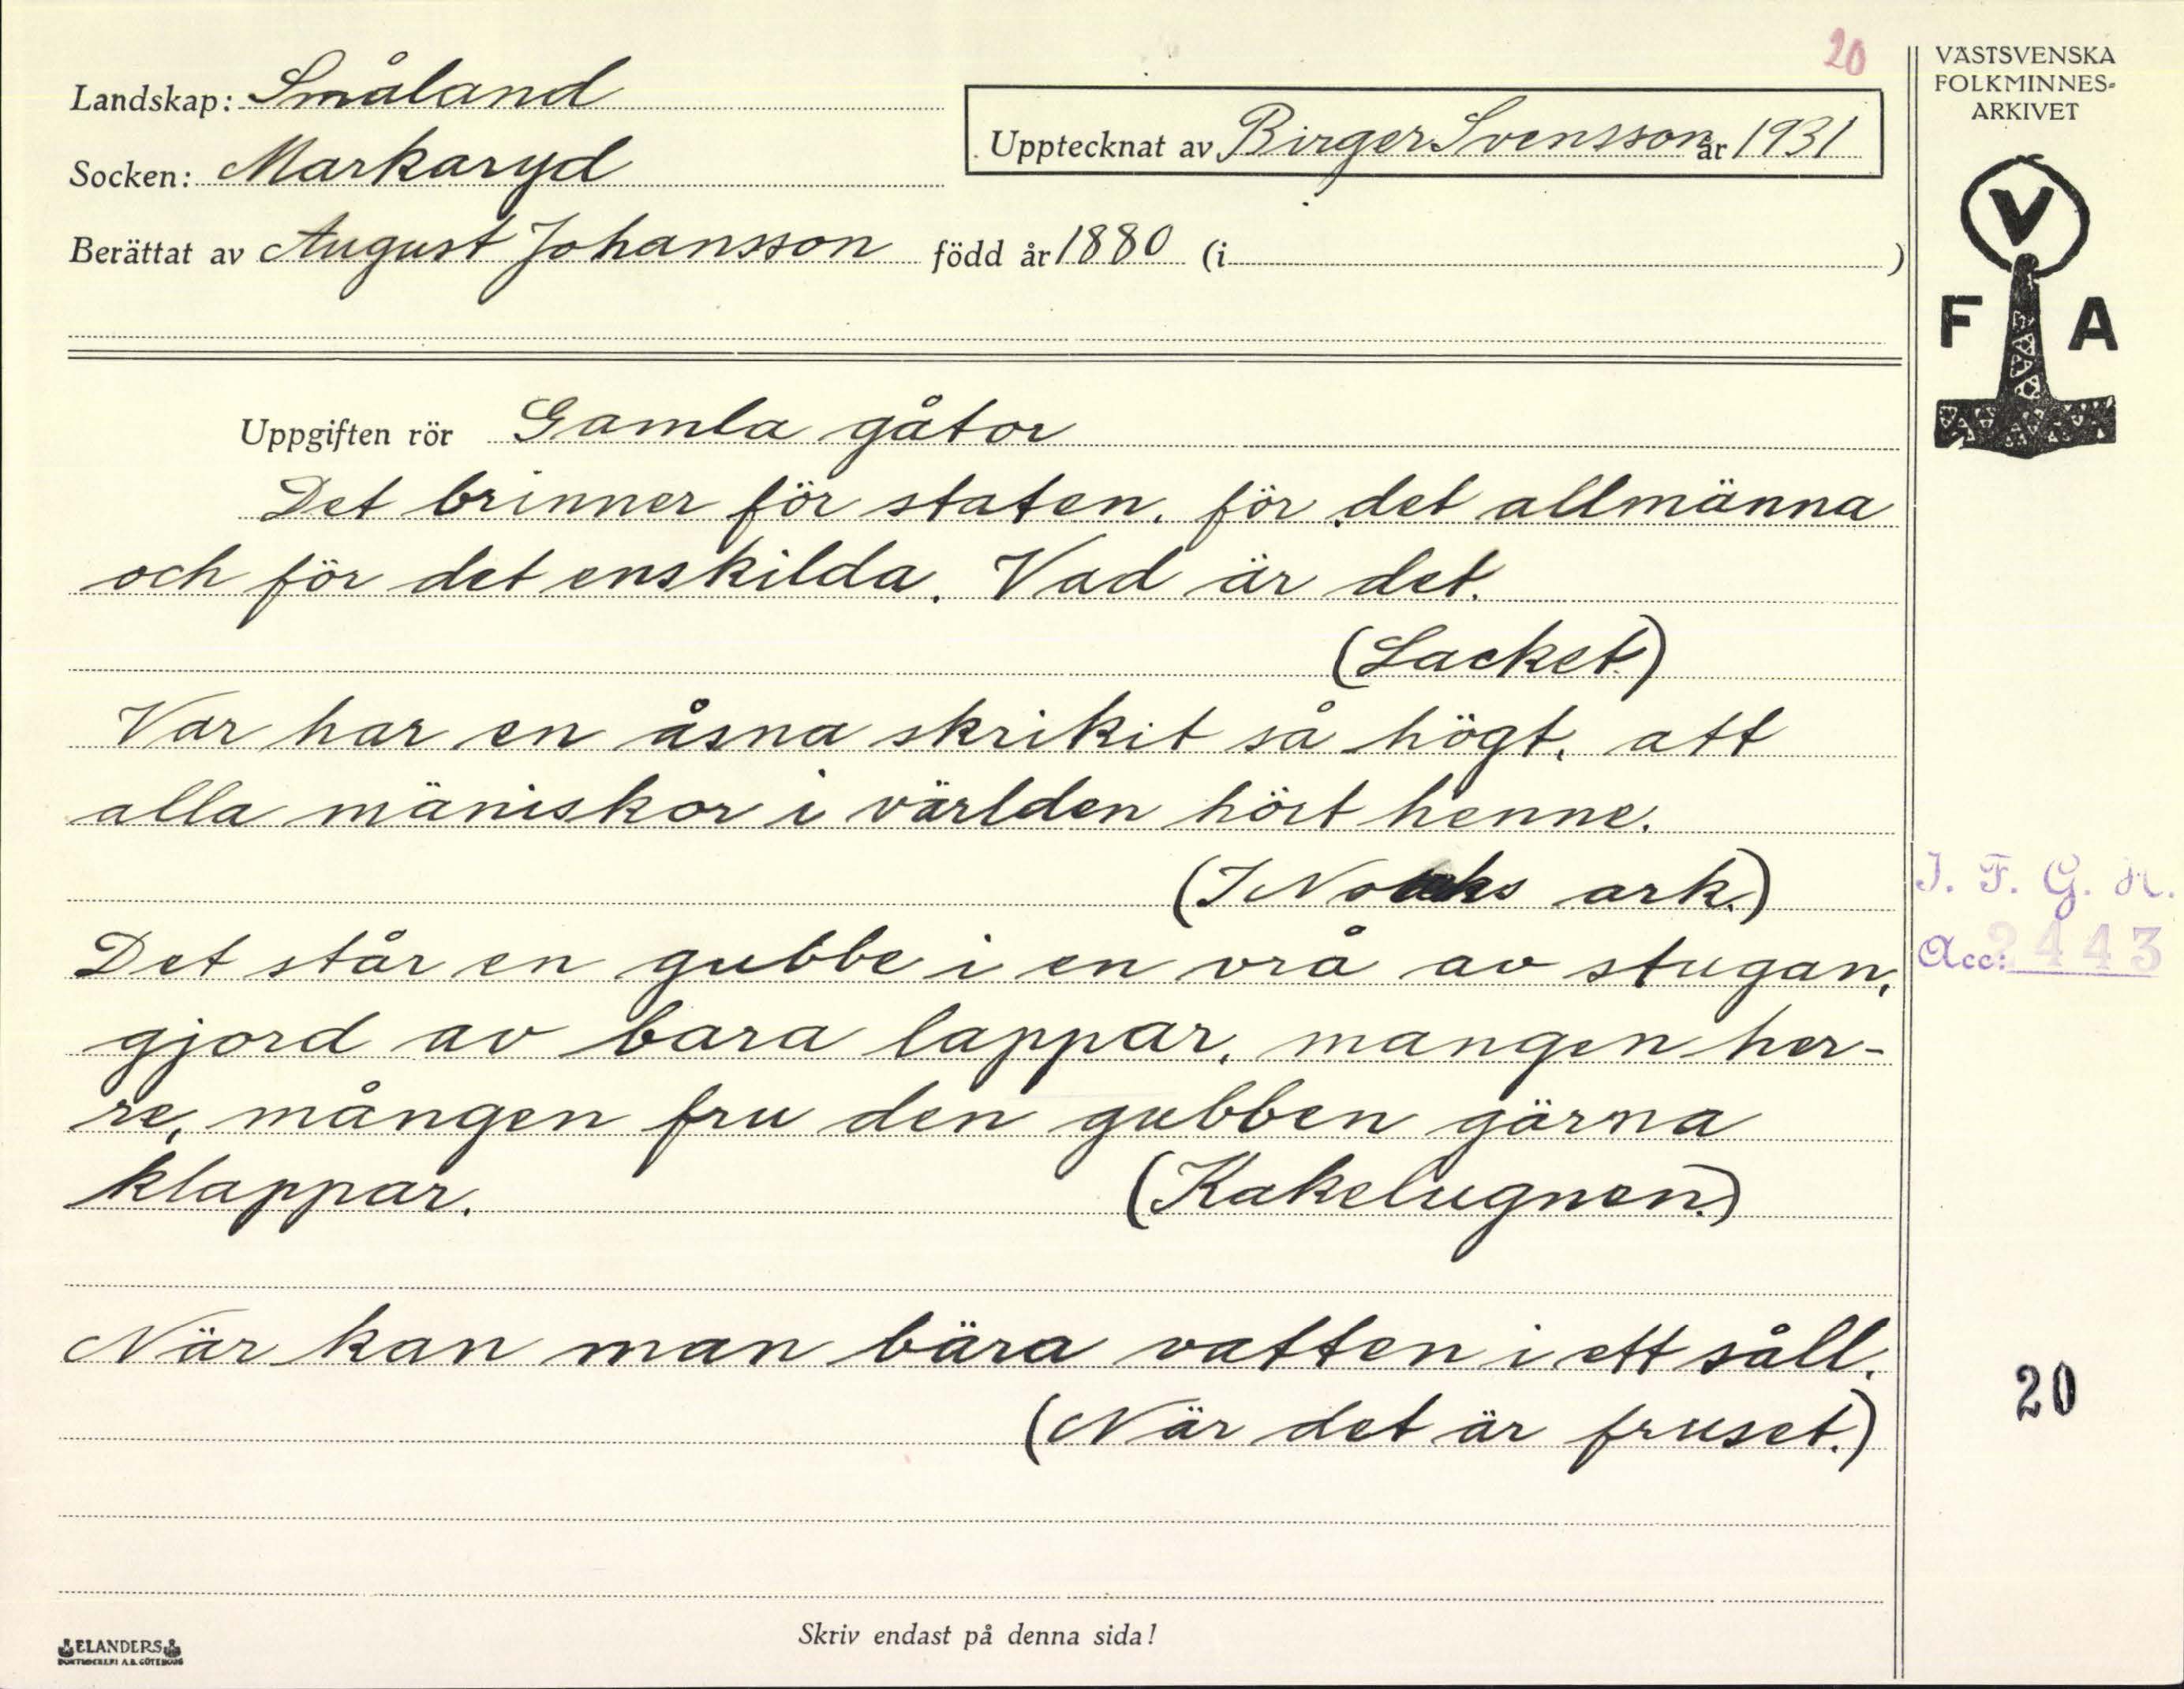 20
VÄSTSVENSKA
FOLKMINNES-
ARKIVET
Landskap: Småland
Upptecknat av Birger Svensson år 1931
Socken: Markaryd
Berättat av August Johansson född år 1880 (i )
V
F A
Uppgiften rör Gamla gåtor
Det brinner för staten, för det allmänna
och för det enskilda. Vad är det.
(Lacket.)
Var har en åsna skrikit så högt, att
alla mäniskor i världen hört henne.
(I Noaks ark.)
I. F. G. H.
Det står en gubbe i en vrå av stugan,
Acc: 2443
gjord av bara lappar, mangen her-
re, mången fru den gubben gärna
klappar. (Kakelugnen.)
När kan man bära vatten i ett såll.
20
(När det är fruset.)
Skriv endast på denna sida!
ELANDERS
BOKTRYCKERI A.B. GÖTEBORG